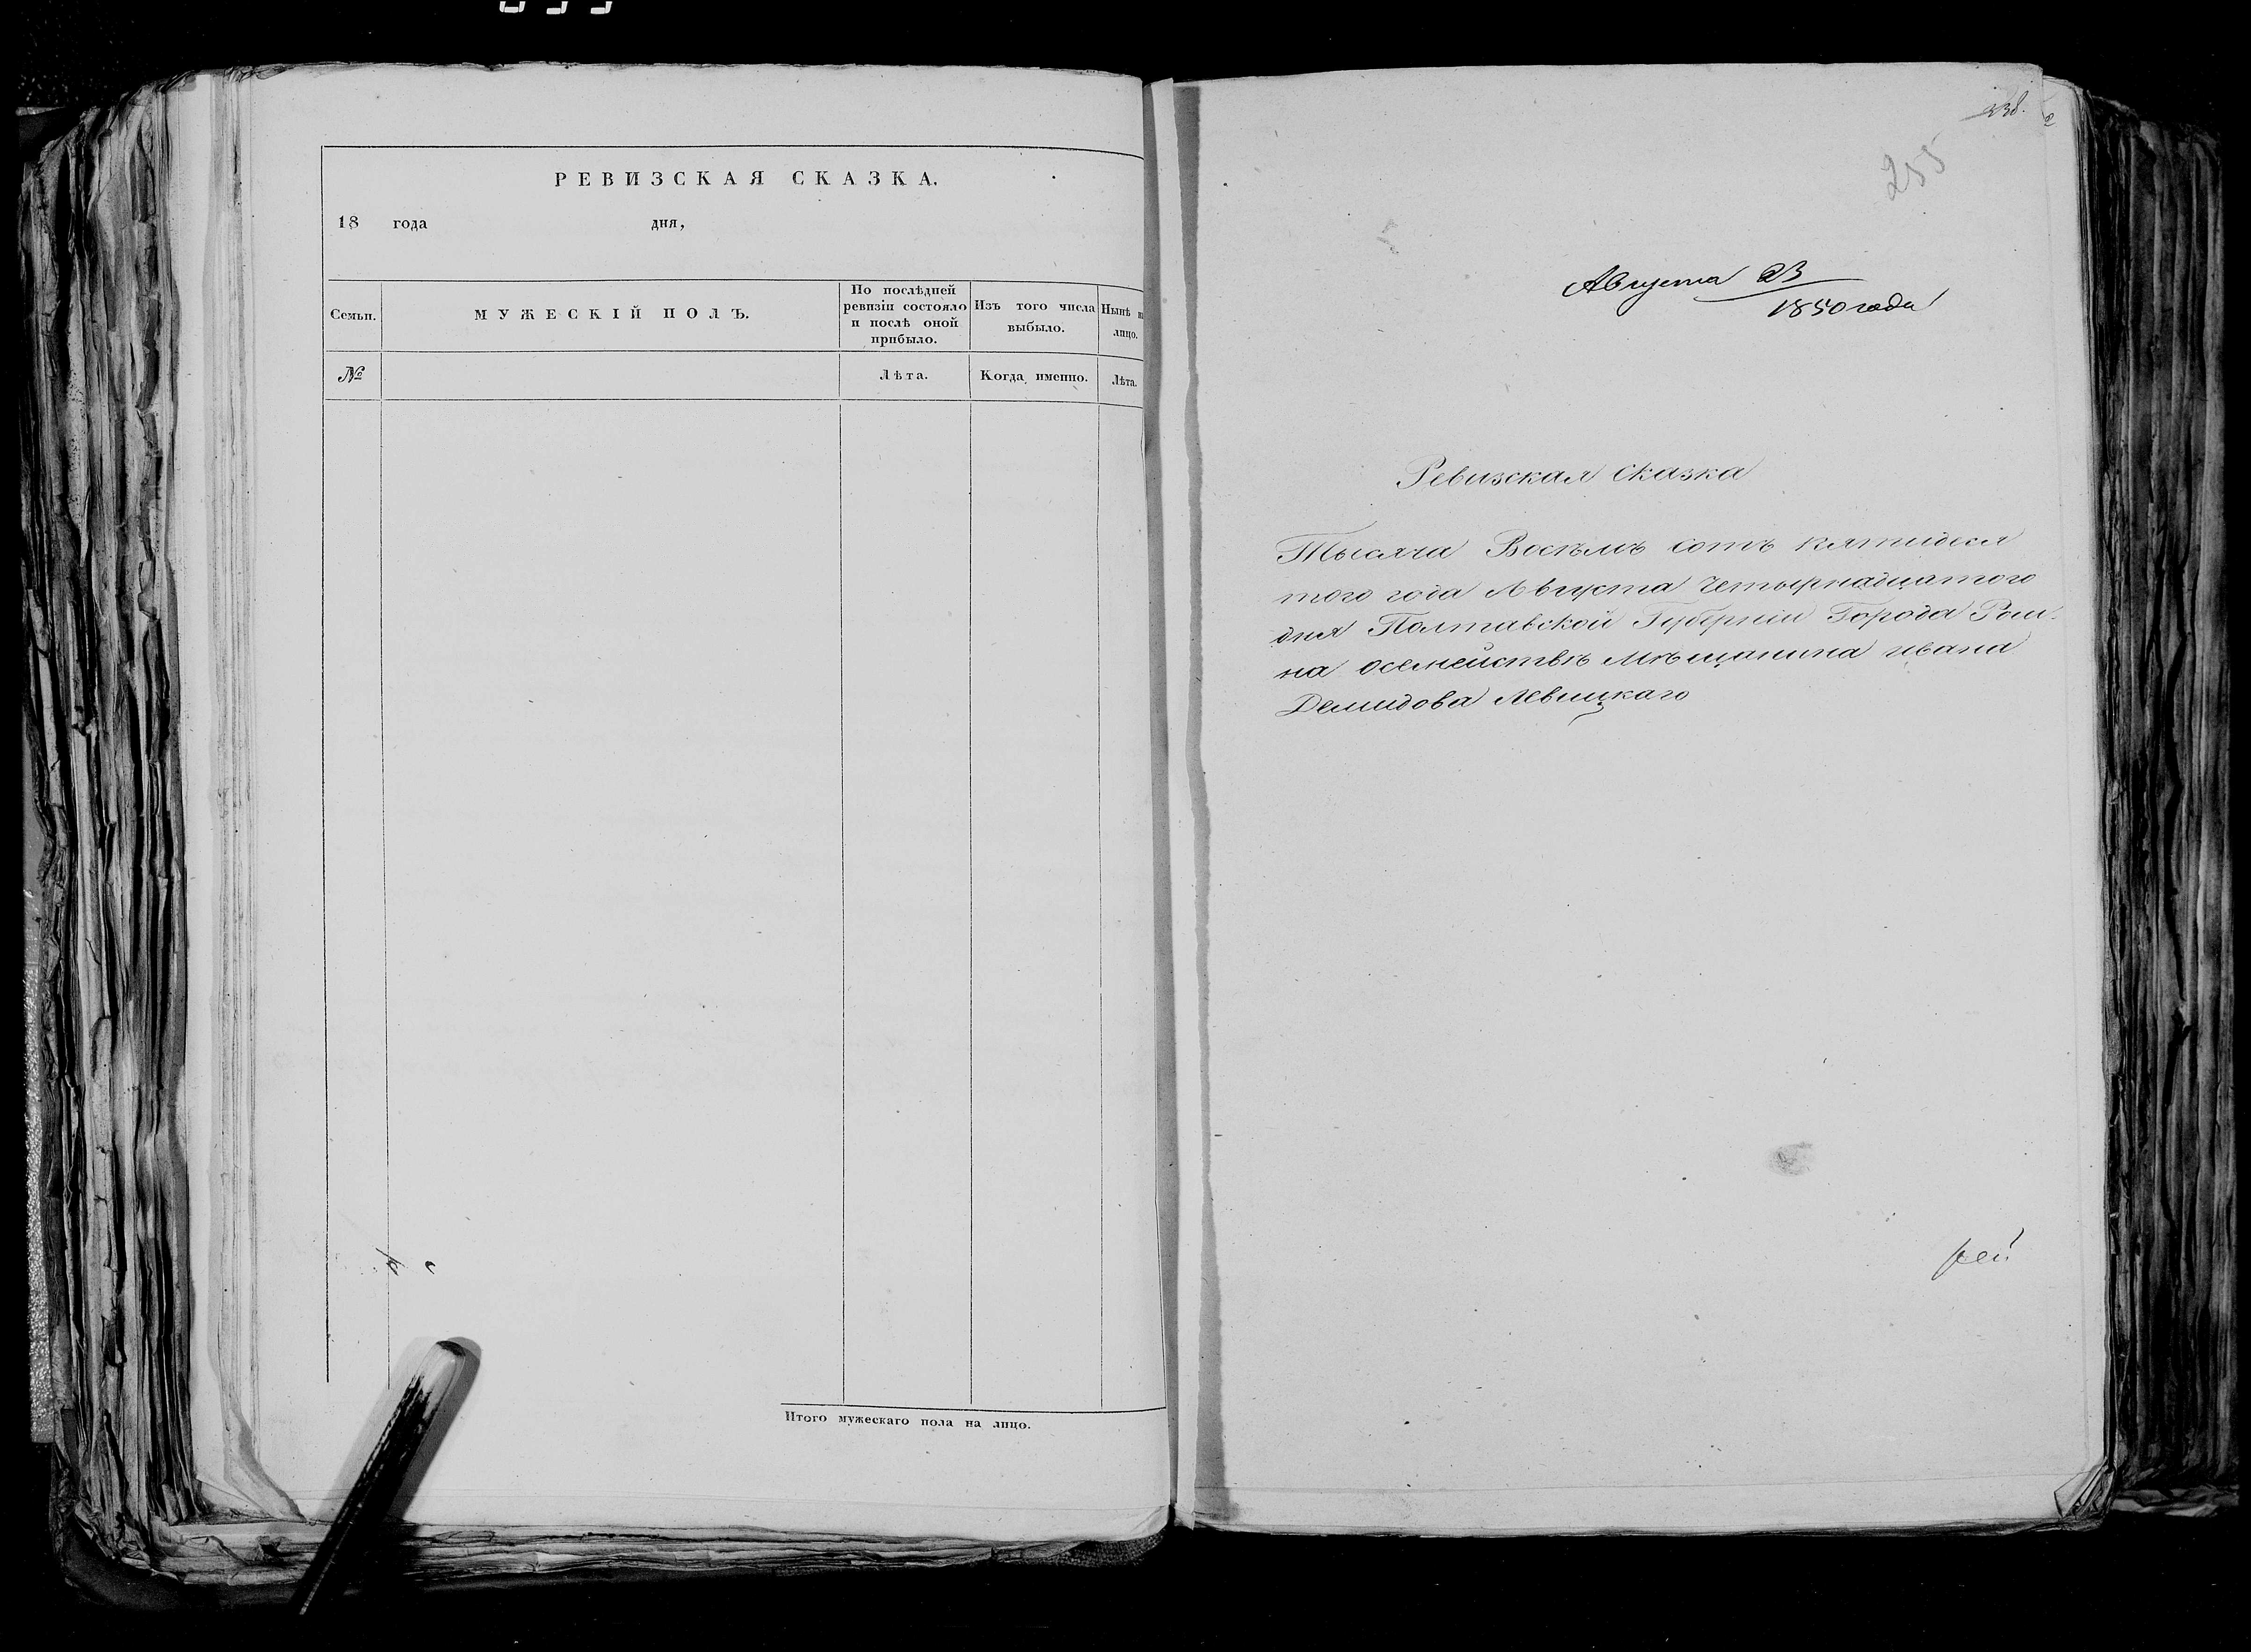 РЕВИЗСКАЯ СКАЗКА.
18 года дня,
Семьи.
МУЖЕСКІЙ ПОЛЪ.
По послѣдней
ревизіи состояло
и послѣ оной
прибыло.
Изъ того числа
выбыло.
Нынѣ
лицо.
№
Лѣта.
Когда именно.
Лѣта.
Итого мужескаго пола на лицо.
238.
255
Августа 23
1850 года
Ревизская Сказка
Тысяча Восѣмъ сотъ пятидеся
того года Августа Четырнадцатого
дня Полтавской Губерніи Города Ром-
на осемействѣ мѣщанина ивана
Демидова Левицкаго